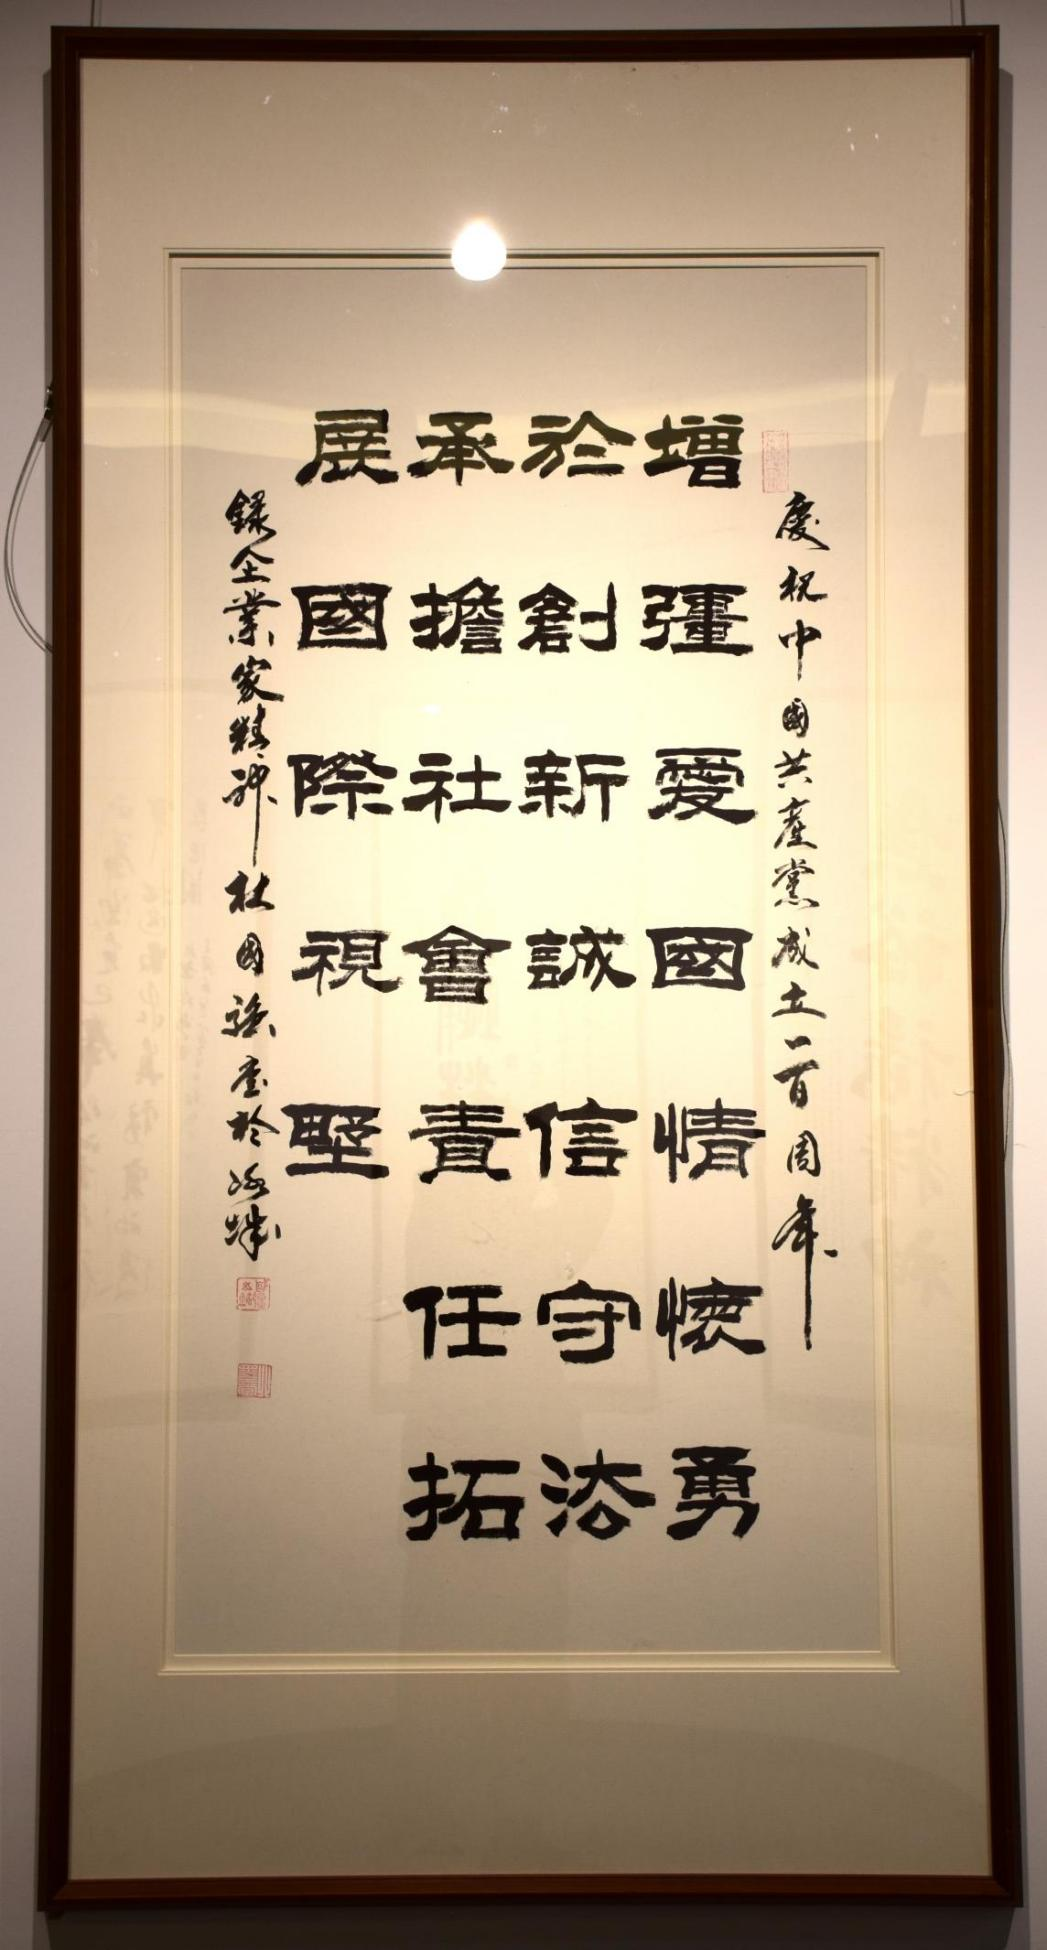 慶祝中國共產黨成立一百周年
增彊愛國情懷勇
於創新誠信守法
承擔社會責任拓
展國際視野
錄企業家精神杜國強書於